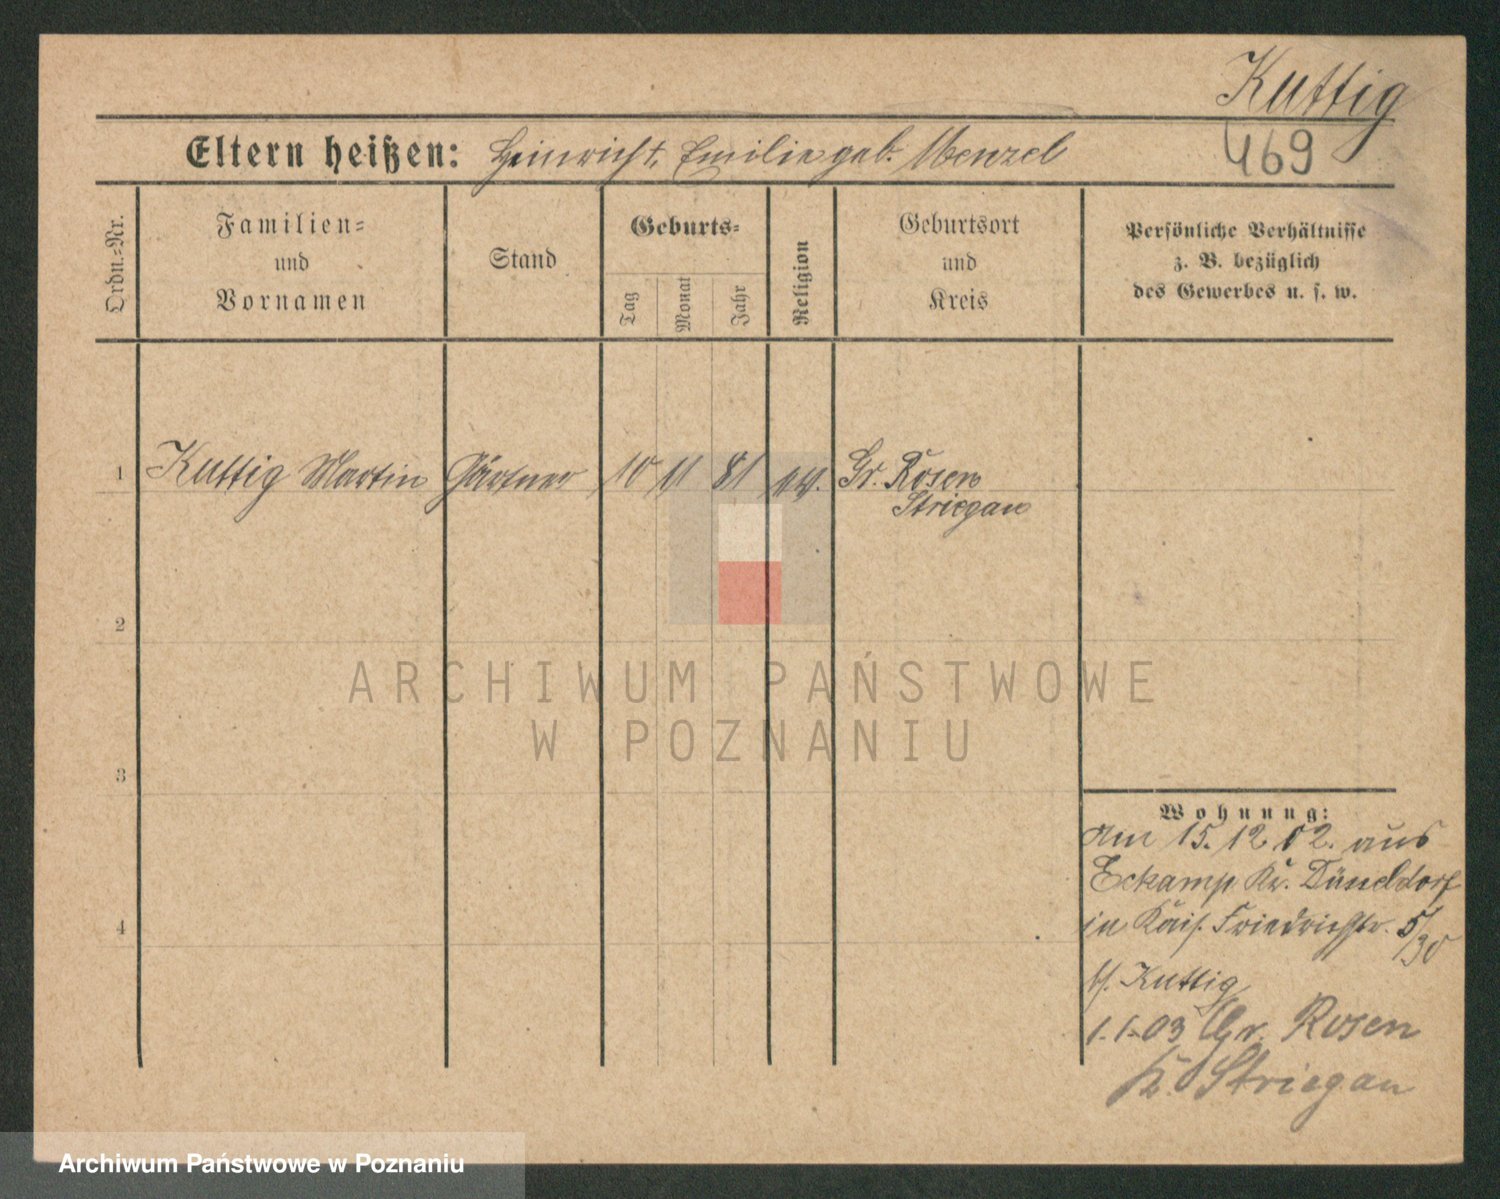 Kuttig
469
Eltern heißen: Heinrich †, Emilie geb. Menzel
Ordn.-Nr.
Familien-
und
Vornamen
Stand
Geburts-
Tag
Monat
Jahr
Religion
Geburtsort
und
Kreis
Persönliche Verhältnisse
z. B. bezüglich
des Gewerbes u. s. w.
1 Kuttig Martin Gärtner 10 11 81 ev. Gr. Rosen
Striegau
2
3
4
Wohnung:
Am 15.12.02. aus
Eckamp Kr. Düsseldorf
in Kais. Friedrichstr. 5/30
b/. Kuttig
1.1.03 Gr. Rosen
K. Striegau
ARCHIWUM PAŃSTWOWE
W POZNANIU
Archiwum Państwowe w Poznaniu